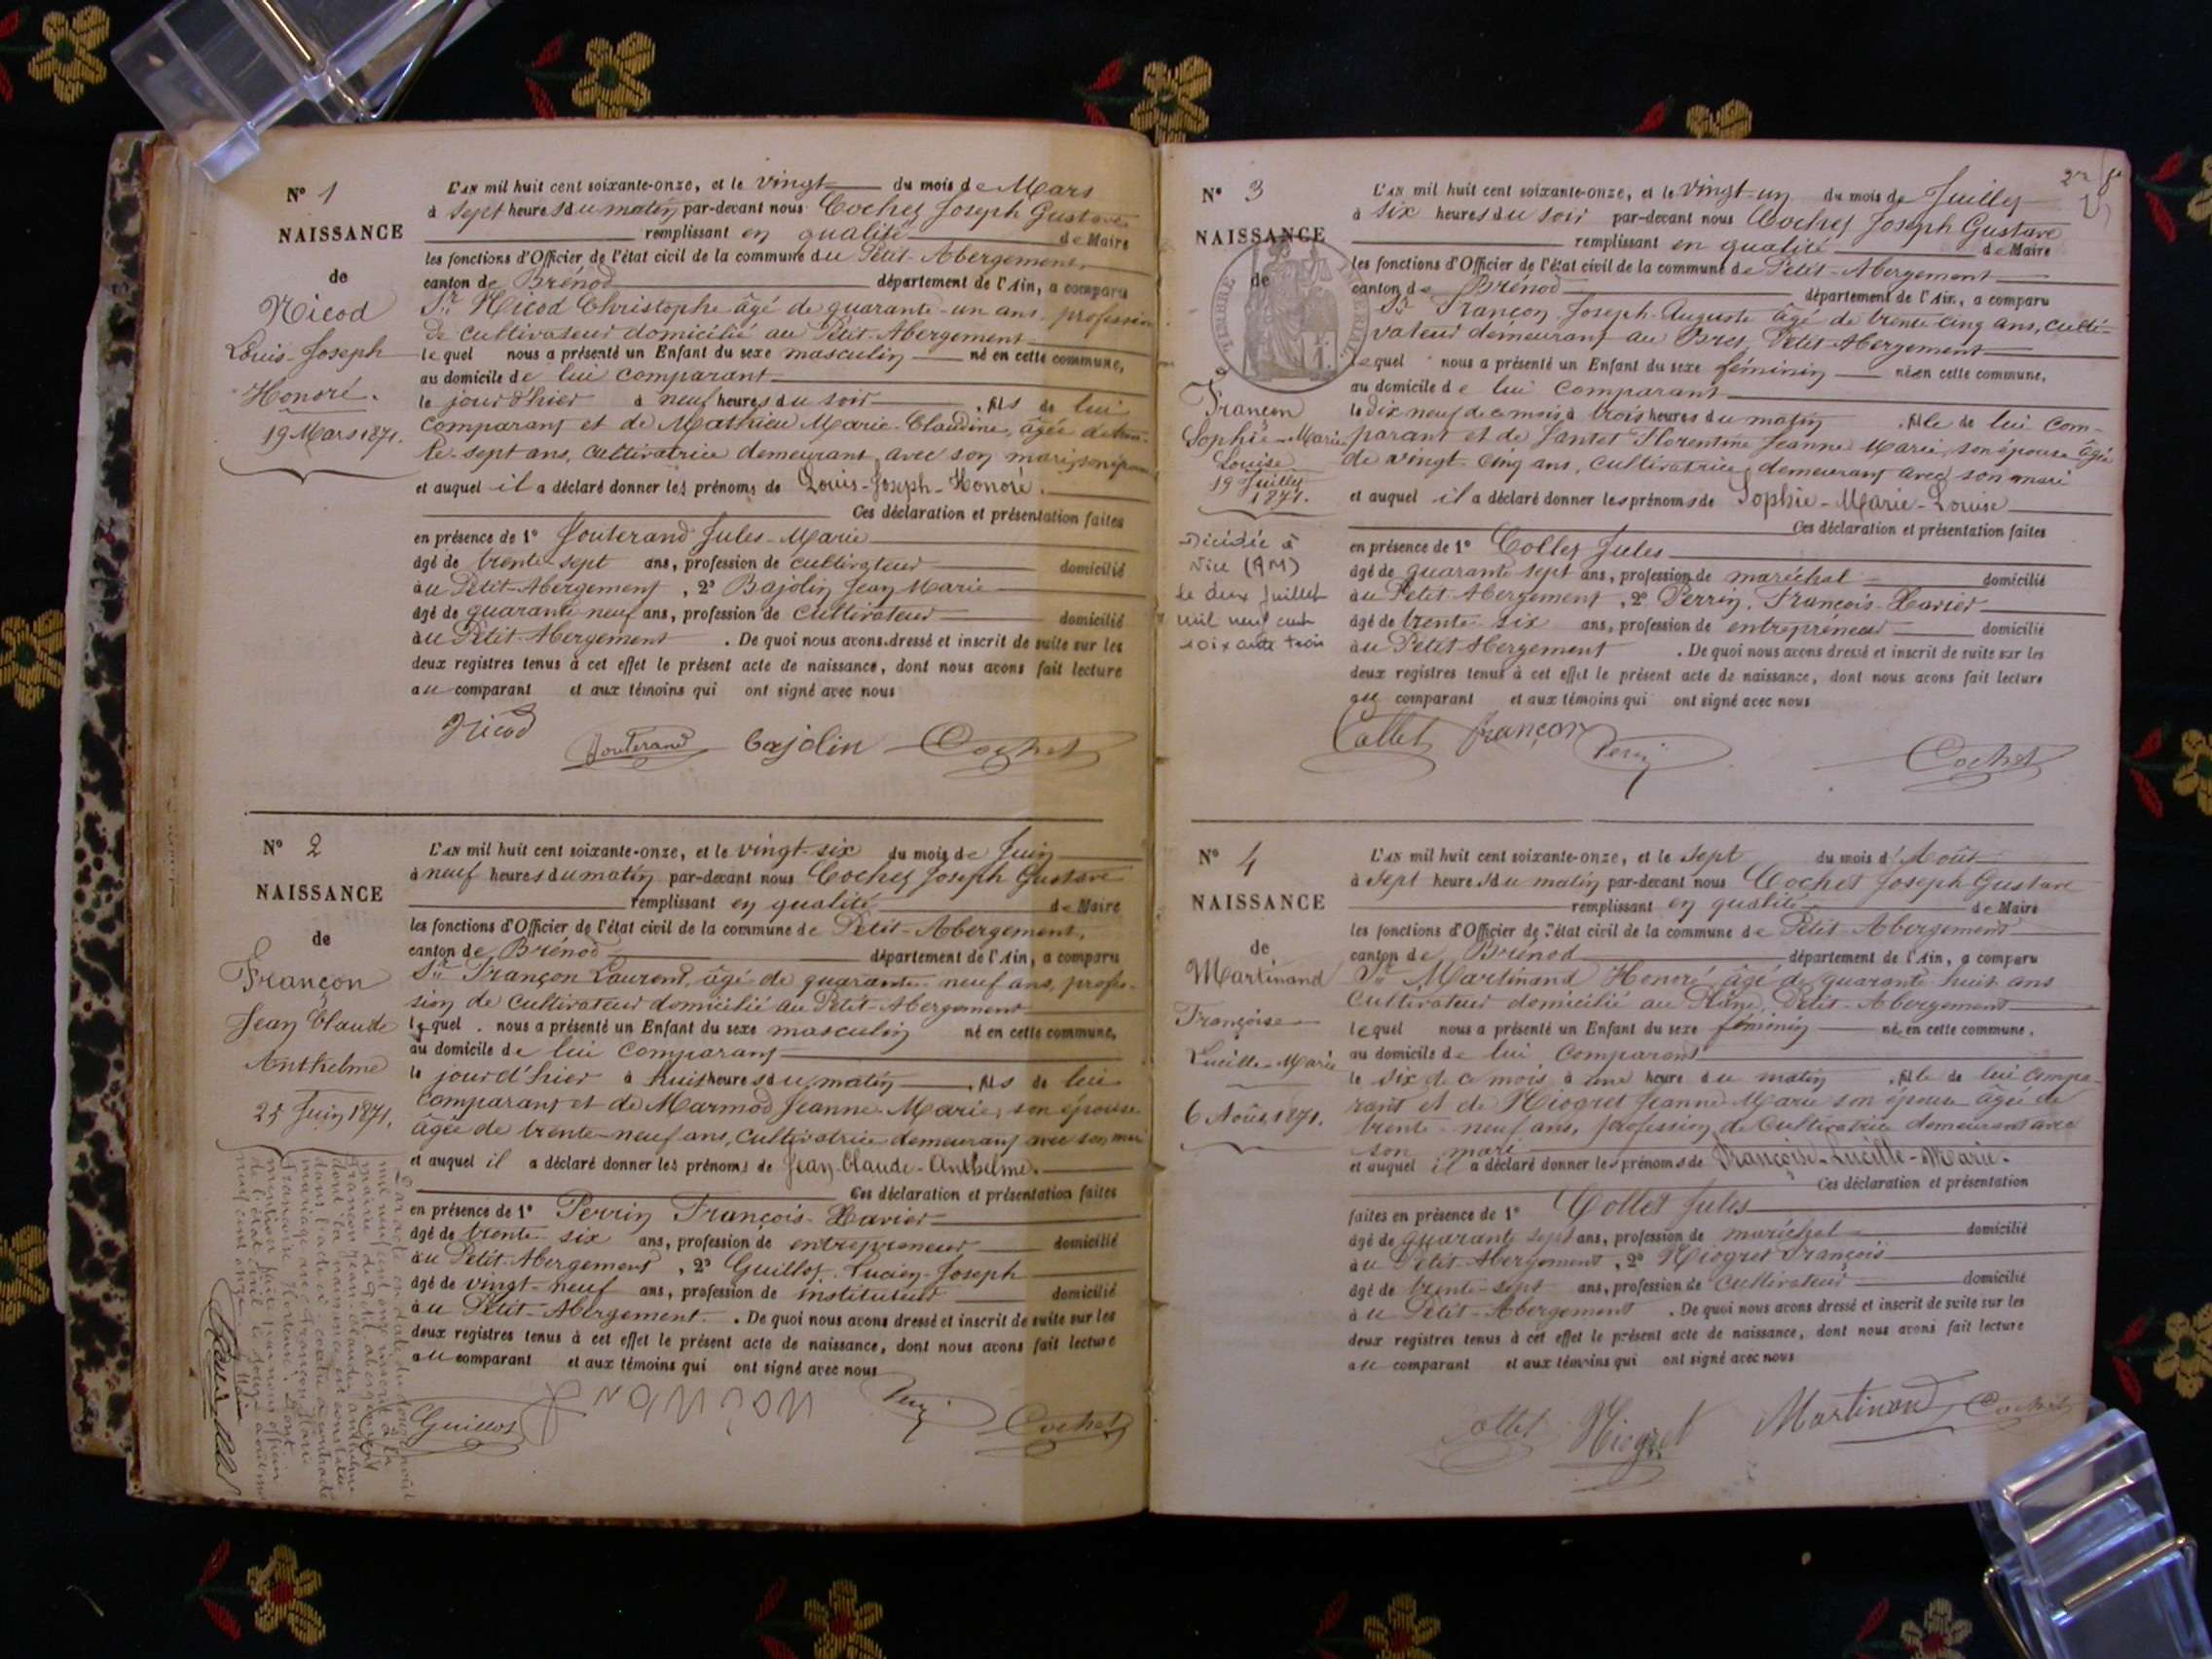 N° 1
NAISSANCE
de
Nicod
Louis-Joseph
Honoré.
19 Mars 1871.
L'AN mil huit cent soixante-onze, et le vingt du mois de Mars
à sept heures du matin par-devant nous Cochet Joseph Gustave
remplissant en qualité de Maire
les fonctions d'Officier de l'état civil de la commune du Petit-Abergement,
canton de Brénod département de l'Ain, a comparu
Sr Nicod Christophe âgé de quarante-un ans, profession
de cultivateur domicilié au Petit-Abergement
lequel nous a présenté un Enfant du sexe masculin né en cette commune,
au domicile de lui comparant
le jour d'hier à neuf heures du soir, fils de lui
comparant et de Mathieu Marie-Claudine, âgée de tren-
te-sept ans, cultivatrice demeurant avec son mari,
et auquel il a déclaré donner les prénoms de Louis-Joseph-Honoré.
Ces déclaration et présentation faites
en présence de 1° Jules-Marie
âgé de trente-sept ans, profession de cultivateur domicilié
au Petit-Abergement, 2° Bajolin Jean Marie
âgé de quarante neuf ans, profession de cultivateur domicilié
au Petit-Abergement. De quoi nous avons dressé et inscrit de suite sur les
deux registres tenus à cet effet le présent acte de naissance, dont nous avons fait lecture
au comparant et aux témoins qui ont signé avec nous
Nicod bajolin Cochet
N° 2
NAISSANCE
de
Françon
Jean Claude
Anthelme
25 Juin 1871.
L'AN mil huit cent soixante-onze, et le vingt-six du mois de Juin
à neuf heures du matin par-devant nous Cochet Joseph Gustave
remplissant en qualité de Maire
les fonctions d'Officier de l'état civil de la commune de Petit-Abergement,
canton de Brénod département de l'Ain, a comparu
Sr Françon Laurent, âgé de quarante neuf ans, profes-
sion de cultivateur domicilié au Petit-Abergement
lequel nous a présenté un Enfant du sexe masculin né en cette commune,
au domicile de lui comparant
le jour d'hier à huit heures du matin, fils de lui
comparant et de Marmod Jeanne-Marie, son épouse
âgée de trente-neuf ans, cultivatrice demeurant avec son mari
et auquel il a déclaré donner les prénoms de Jean-Claude-Anthelme.
Ces déclaration et présentation faites
en présence de 1° Perrin François-Xavier
âgé de trente-six ans, profession de entrepreneur domicilié
au Petit-Abergement, 2° Guillot Lucien-Joseph
âgé de vingt-neuf ans, profession de instituteur domicilié
au Petit-Abergement. De quoi nous avons dressé et inscrit de suite sur les
deux registres tenus à cet effet le présent acte de naissance, dont nous avons fait lecture
au comparant et aux témoins qui ont signé avec nous
Guillot Cochet
N° 3
NAISSANCE
de
Françon
Sophie-Marie
Louise
19 Juillet
1871.
Décédée à
Nice (AM)
le deux juillet
mil neuf cent
soixante trois
L'AN mil huit cent soixante-onze, et le vingt-un du mois de Juillet
à six heures du soir par-devant nous Cochet Joseph Gustave
remplissant en qualité de Maire
les fonctions d'Officier de l'état civil de la commune de Petit-Abergement
canton de Brénod département de l'Ain, a comparu
Sr Françon Joseph-Auguste âgé de trente cinq ans, culti-
vateur demeurant au Petit-Abergement
lequel nous a présenté un Enfant du sexe féminin née en cette commune,
au domicile de lui comparant
le dix neuf de ce mois à trois heures du matin, fille de lui com-
parant et de Florentine Jeanne Marie, son épouse âgée
de vingt-cinq ans, cultivatrice demeurant avec son mari
et auquel il a déclaré donner les prénoms de Sophie-Marie-Louise
Ces déclaration et présentation faites
en présence de 1° Collet Jules
âgé de quarante sept ans, profession de maréchal domicilié
au Petit-Abergement, 2° Perrin, François-Xavier
âgé de trente-six ans, profession de entrepreneur domicilié
au Petit-Abergement. De quoi nous avons dressé et inscrit de suite sur les
deux registres tenus à cet effet le présent acte de naissance, dont nous avons fait lecture
au comparant et aux témoins qui ont signé avec nous
Collet françon Cochet
N° 4
NAISSANCE
de
Martinand
Françoise
Lucille-Marie
6 Août 1871.
L'AN mil huit cent soixante-onze, et le sept du mois d'Août
à sept heures du matin par-devant nous Cochet Joseph Gustave
remplissant en qualité de Maire
les fonctions d'Officier de l'état civil de la commune de Petit-Abergement
canton de Brénod département de l'Ain, a comparu
Sr Martinand Honoré âgé de quarante huit ans
cultivateur domicilié au Petit-Abergement
lequel nous a présenté un Enfant du sexe féminin née en cette commune,
au domicile de lui comparant
le six de ce mois à une heure du matin, fille de lui compa-
rant et de Niogret Jeanne-Marie son épouse âgée de
trente-neuf ans, profession de cultivatrice demeurant avec
son mari
et auquel il a déclaré donner les prénoms de Françoise-Lucille-Marie.
Ces déclaration et présentation
faites en présence de 1° Collet Jules
âgé de quarante sept ans, profession de maréchal domicilié
au Petit-Abergement, 2° Niogret François
âgé de trente-sept ans, profession de cultivateur domicilié
au Petit-Abergement. De quoi nous avons dressé et inscrit de suite sur les
deux registres tenus à cet effet le présent acte de naissance, dont nous avons fait lecture
au comparant et aux témoins qui ont signé avec nous
Collet Niogret Martinand Cochet